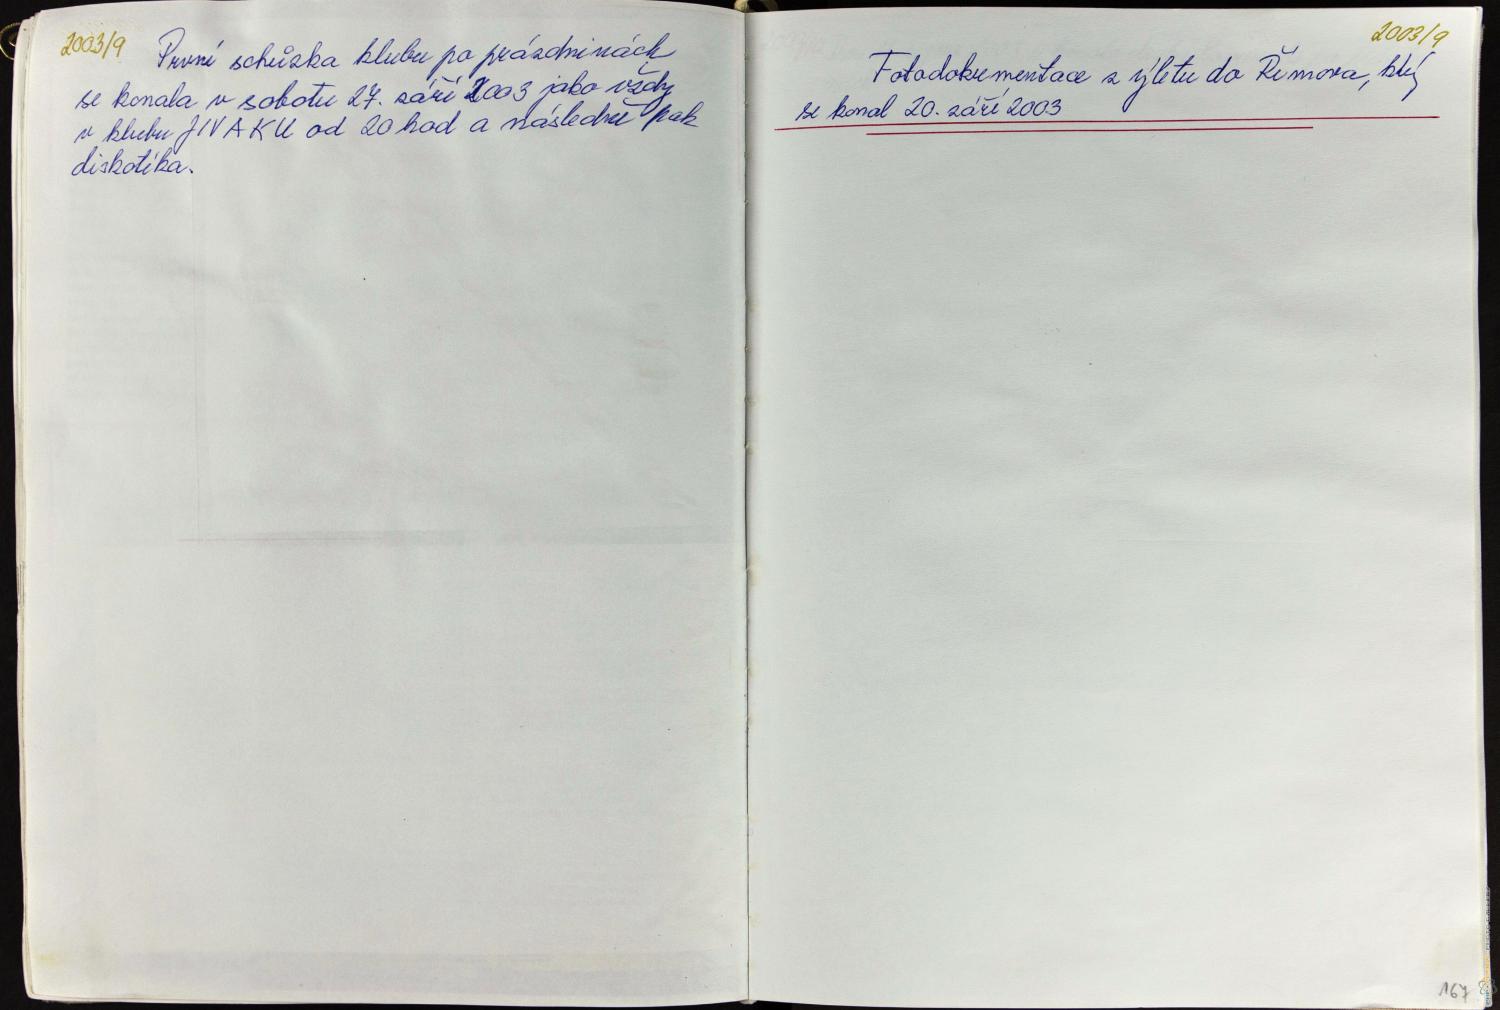 2003/9
První schůzka klubu po prázdninách
se konala v sobotu 27. září 2003 jako vždy
v klubu JIVAKU od 20 hod a následně pak
diskotéka.
2003/9
Fotodokumentace z výletu do Římova, kt
se konal 20. září 2003
167